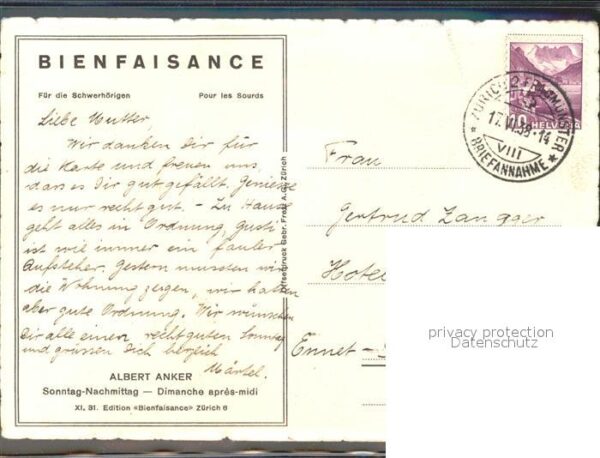 BIENFAISANCE
Für die Schwerhörigen Pour les Sourds
Liebe Mutter,
Wir danken Dir für
die Karte und freuen uns,
dass es Dir gut gefällt. Geniesse
es nur recht gut. – Zu Hause
geht alles in Ordnung, Gusti
ist wie immer ein fauler
Aufsteher. Gestern mussten wir
die Wohnung zeigen, wir hatten
aber gute Ordnung. Wir wünschen
Dir alle einen recht guten Sonntag
und grüssen Dich herzlich
Märtel.
ALBERT ANKER
Sonntag-Nachmittag — Dimanche après-midi
XI, 31. Edition «Bienfaisance» Zürich 6
Offsetdruck Gebr. Fretz A.G. Zürich
HELVETIA
ZÜRICH 2 FRAUMÜNSTER
17.VI.38-14
VIII
* BRIEFANNAHME *
Frau
Gertrud Zangger
Hotel
Ennet-
privacy protection
Datenschutz